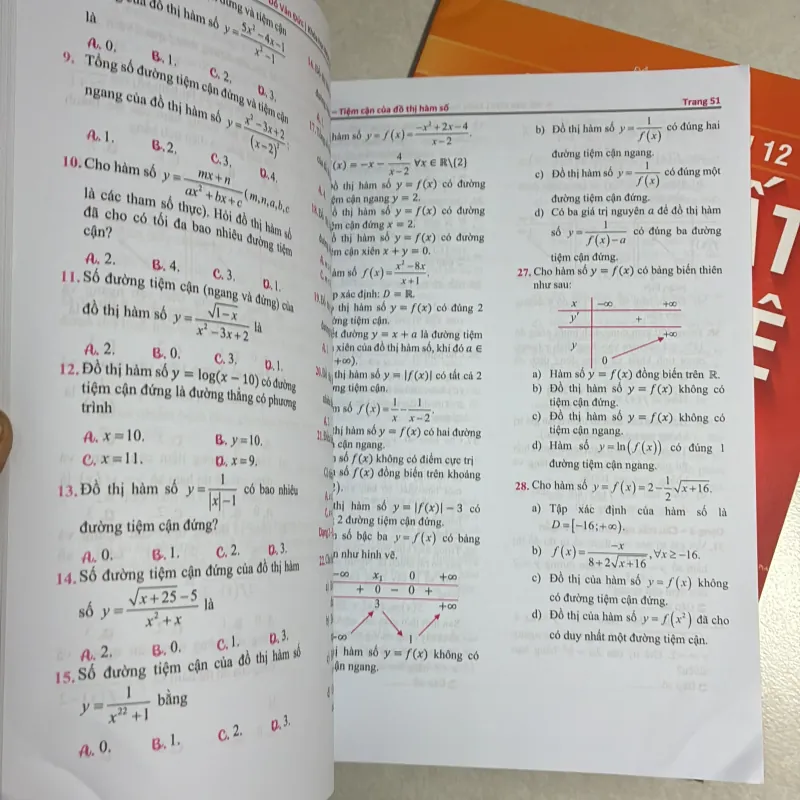 của đồ thị hàm số y = 5x² − 4x − 1 / x² − 1
là
A. 0. B. 1. C. 2. D. 3.
9. Tổng số đường tiệm cận đứng và tiệm cận
ngang của đồ thị hàm số y = x² − 3x + 2 / (x − 2)²:
A. 1. B. 2. C. 3. D. 4.
10. Cho hàm số y = mx + n / ax² + bx + c (m, n, a, b, c
là các tham số thực). Hỏi đồ thị hàm số
đã cho có tối đa bao nhiêu đường tiệm
cận?
A. 2. B. 4. C. 3. D. 1.
11. Số đường tiệm cận (ngang và đứng) của
đồ thị hàm số y = √(1 − x) / x² − 3x + 2 là
A. 2. B. 0. C. 3. D. 1.
12. Đồ thị hàm số y = log(x − 10) có đường
tiệm cận đứng là đường thẳng có phương
trình
A. x = 10. B. y = 10.
C. x = 11. D. x = 9.
13. Đồ thị hàm số y = 1 / |x| − 1 có bao nhiêu
đường tiệm cận đứng?
A. 0. B. 1. C. 2. D. 3.
14. Số đường tiệm cận đứng của đồ thị hàm
số y = √(x + 25) − 5 / x² + x là
A. 2. B. 0. C. 1. D. 3.
15. Số đường tiệm cận của đồ thị hàm số
y = 1 / x²² + 1 bằng
A. 0. B. 1. C. 2. D. 3.
– Tiệm cận của đồ thị hàm số Trang 51
hàm số y = f(x) = −x² + 2x − 4 / x − 2.
(x) = −x − 4 / x − 2 ∀x ∈ ℝ\{2}
thị hàm số y = f(x) có đường
cận ngang y = 2.
thị hàm số y = f(x) có đường
cận đứng x = 2.
thị hàm số y = f(x) có đường
cận xiên x + y = 0.
số f(x) = x² − 8x / x + 1.
xác định: D = ℝ.
thị hàm số y = f(x) có đúng 2
tiệm cận.
đường y = x + a là đường tiệm
xiên của đồ thị hàm số, khi đó a ∈
+∞).
thị hàm số y = |f(x)| có tất cả 2
tiệm cận.
số f(x) = 1/x − 1/x − 2.
thị hàm số y = f(x) có hai đường
cận ngang.
số f(x) không có điểm cực trị
số f(x) đồng biến trên khoảng
thị hàm số y = |f(x)| − 3 có
2 đường tiệm cận đứng.
số bậc ba y = f(x) có bảng
như hình vẽ.
−∞ x₁ 0 +∞
+ 0 − 0 +
3 +∞
−∞ 1
hàm số y = f(x) không có
cận ngang.
b) Đồ thị hàm số y = 1 / f(x) có đúng hai
đường tiệm cận ngang.
c) Đồ thị hàm số y = 1 / f(x) có đúng một
đường tiệm cận đứng.
d) Có ba giá trị nguyên a để đồ thị hàm
số y = 1 / f(x) − a có đúng ba đường
tiệm cận đứng.
27. Cho hàm số y = f(x) có bảng biến thiên
như sau:
x −∞ +∞
y' +
y 0 +∞
a) Hàm số y = f(x) đồng biến trên ℝ.
b) Đồ thị hàm số y = f(x) không có
tiệm cận đứng.
c) Đồ thị hàm số y = f(x) không có
tiệm cận ngang.
d) Hàm số y = ln(f(x)) có đúng 1
đường tiệm cận ngang.
28. Cho hàm số y = f(x) = 2 − 1/2 √(x + 16).
a) Tập xác định của hàm số là
D = [−16; +∞).
b) f(x) = −x / 8 + 2√(x + 16), ∀x ≥ −16.
c) Đồ thị của hàm số y = f(x) không
có đường tiệm cận đứng.
d) Đồ thị của hàm số y = f(x²) đã cho
có duy nhất một đường tiệm cận.
12